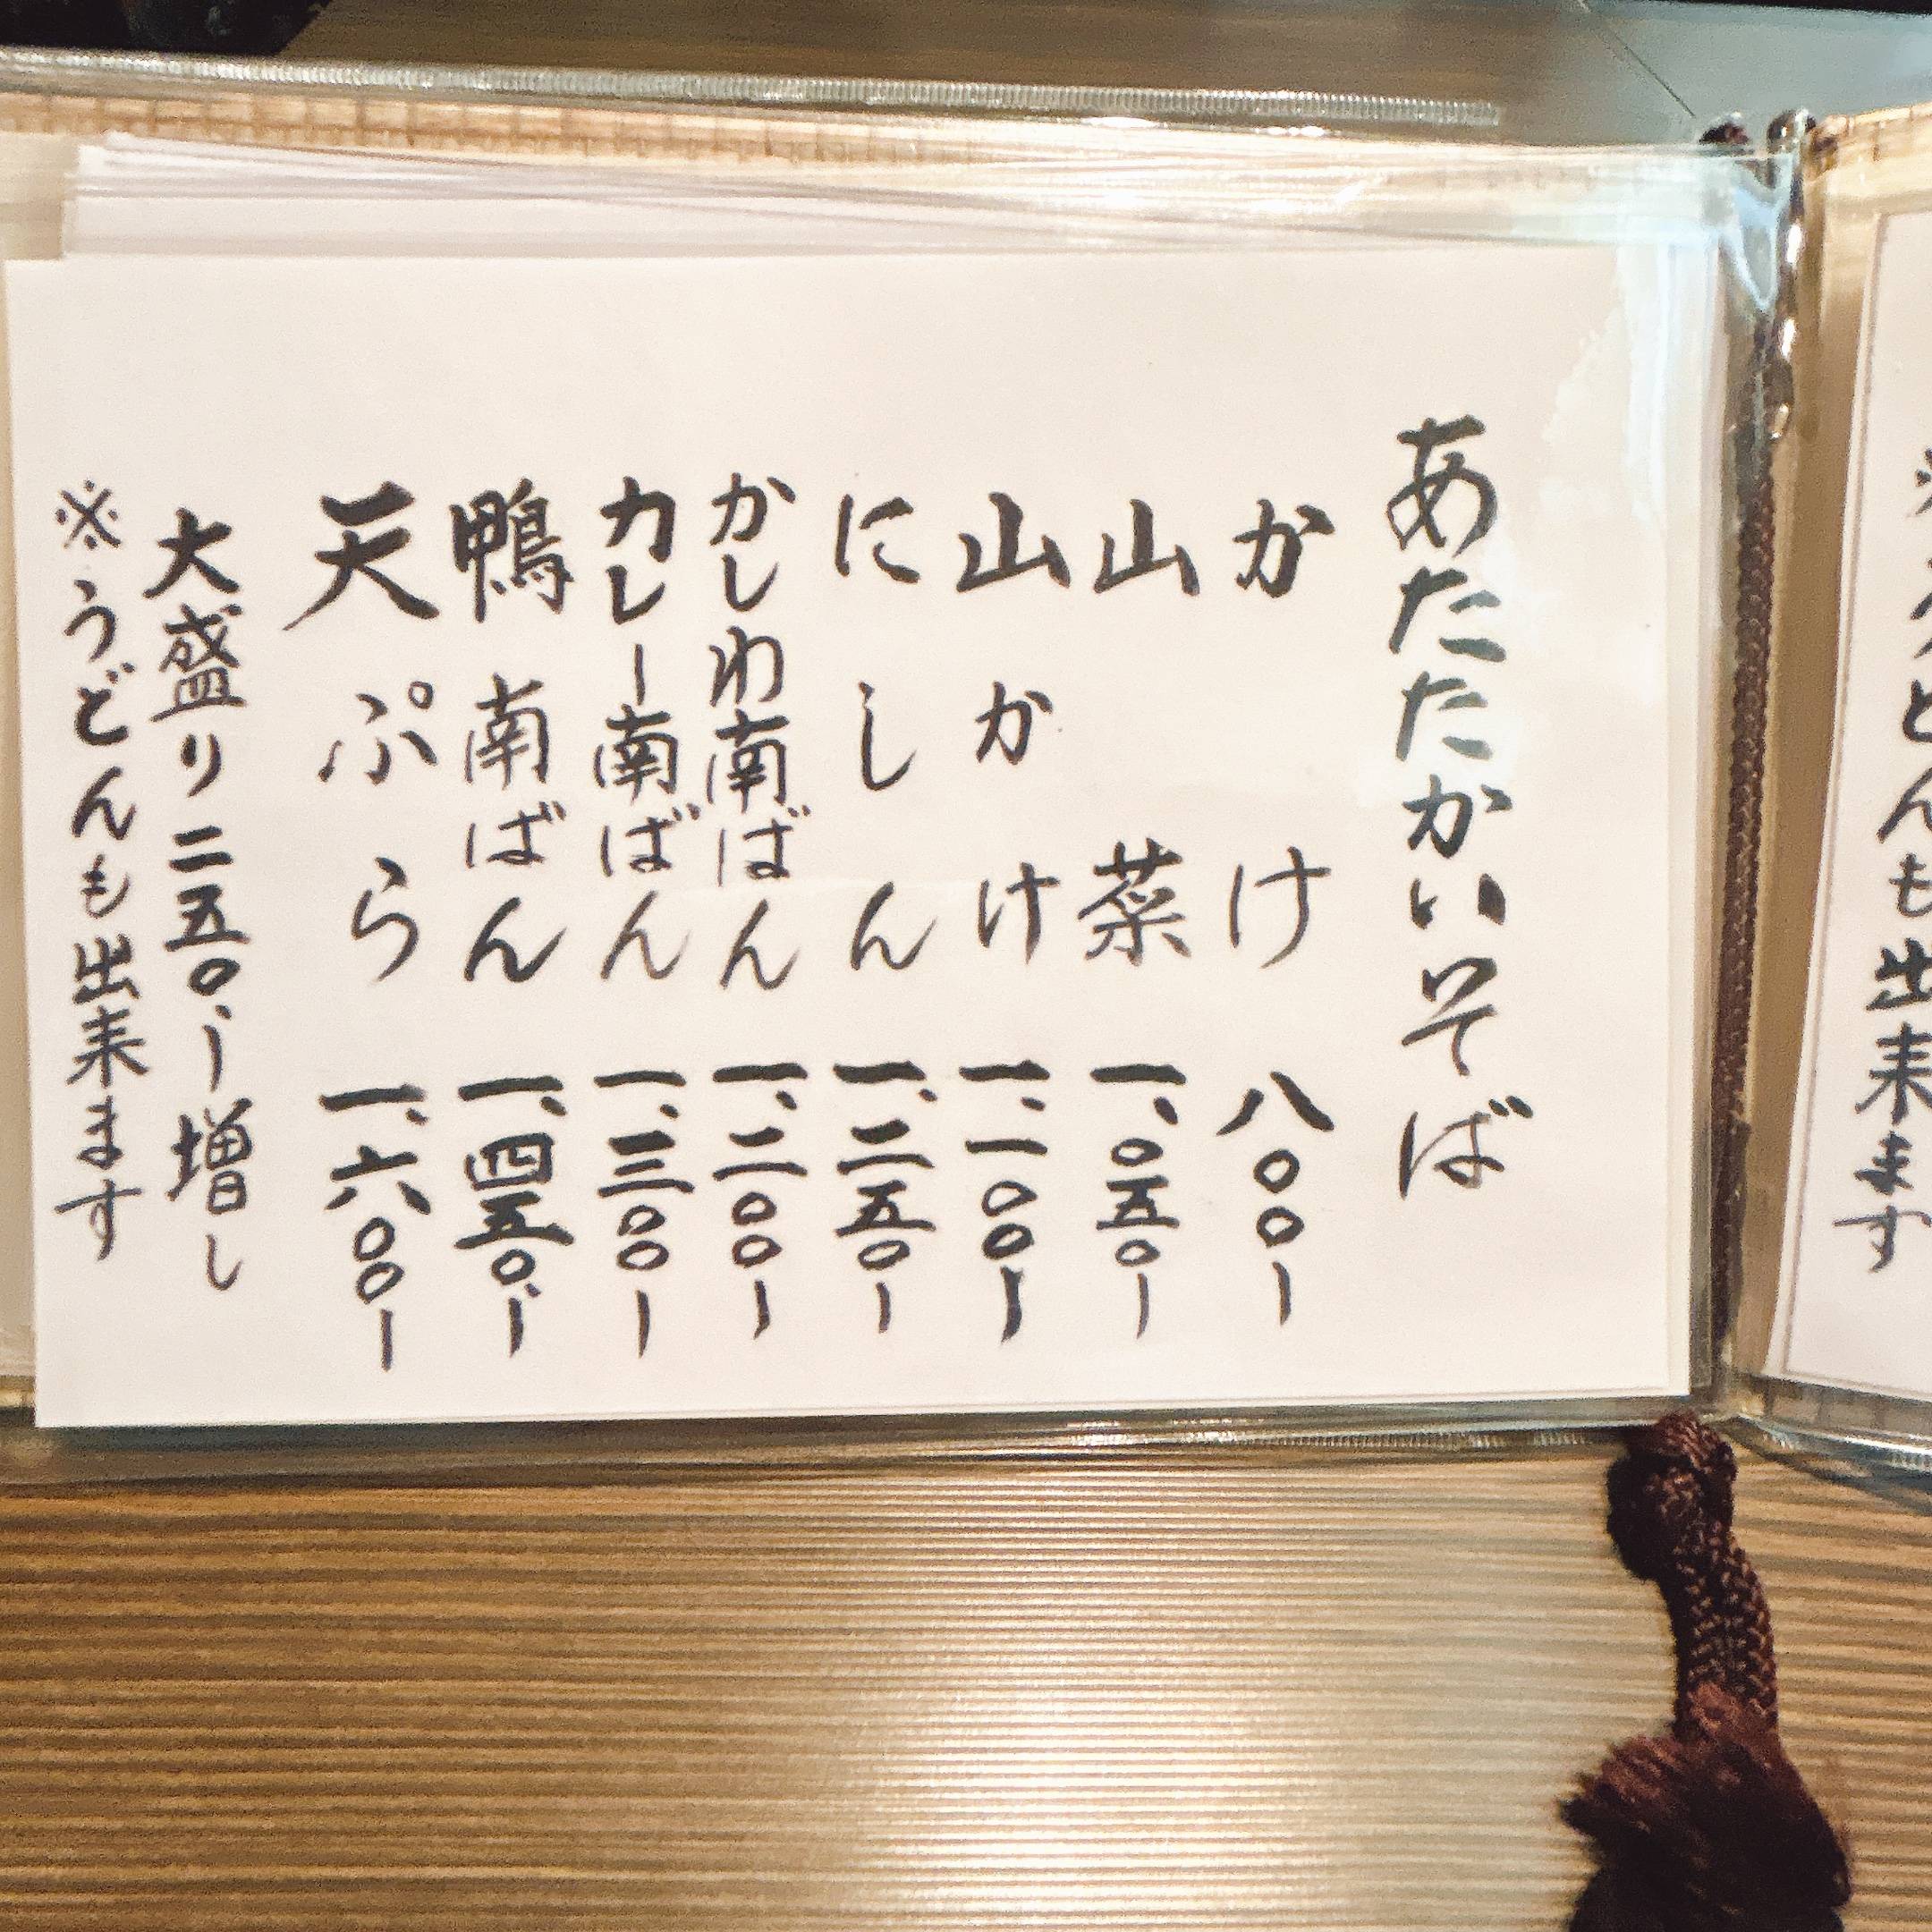 あたたかいそば
かけ 八〇〇ー
山菜 一、〇五〇ー
山かけ 一、一〇〇ー
にしん 一、二五〇ー
かしわ南ばん 一、二〇〇ー
カレー南ばん 一、三〇〇ー
鴨南ばん 一、四五〇、ー
天ぷら 一、六〇〇ー
大盛り二五〇、ー増し
※うどんも出来ます